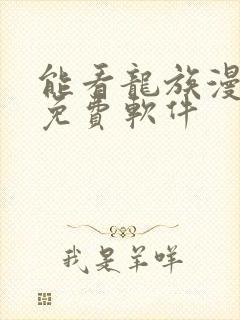 能看龍族漫
免費軟件
我是羊咩